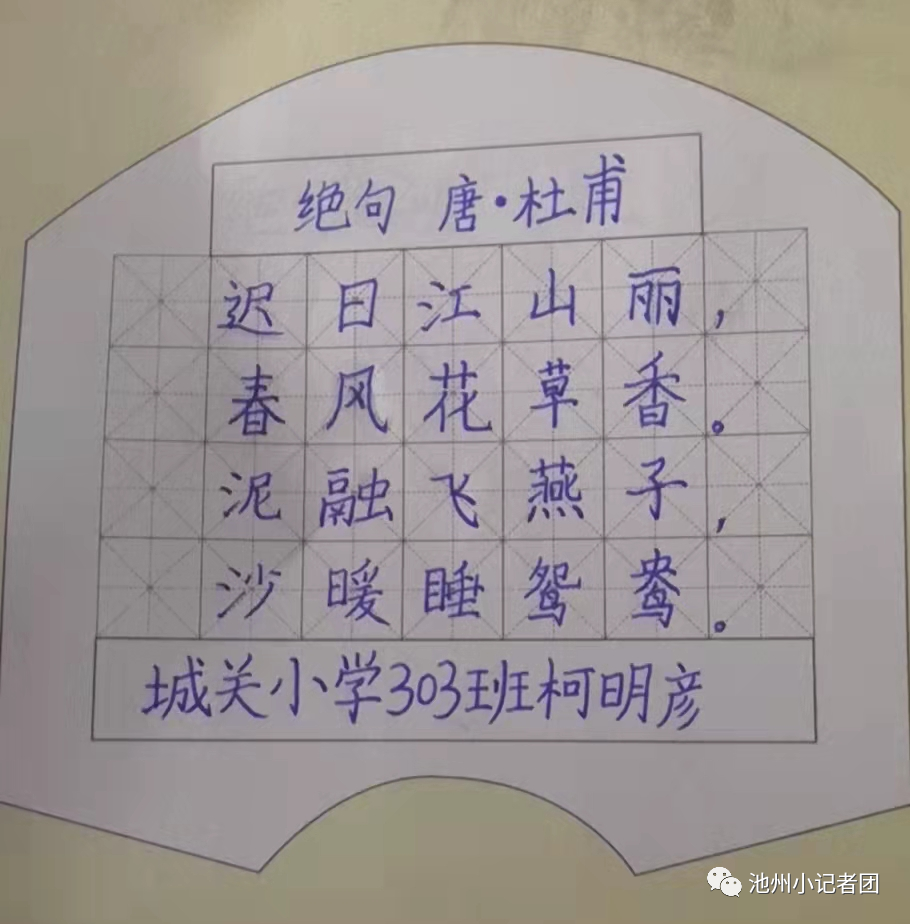 绝句 唐·杜甫
迟日江山丽，
春风花草香。
泥融飞燕子，
沙暖睡鸳鸯。
城关小学303班柯明彦
池州小记者团